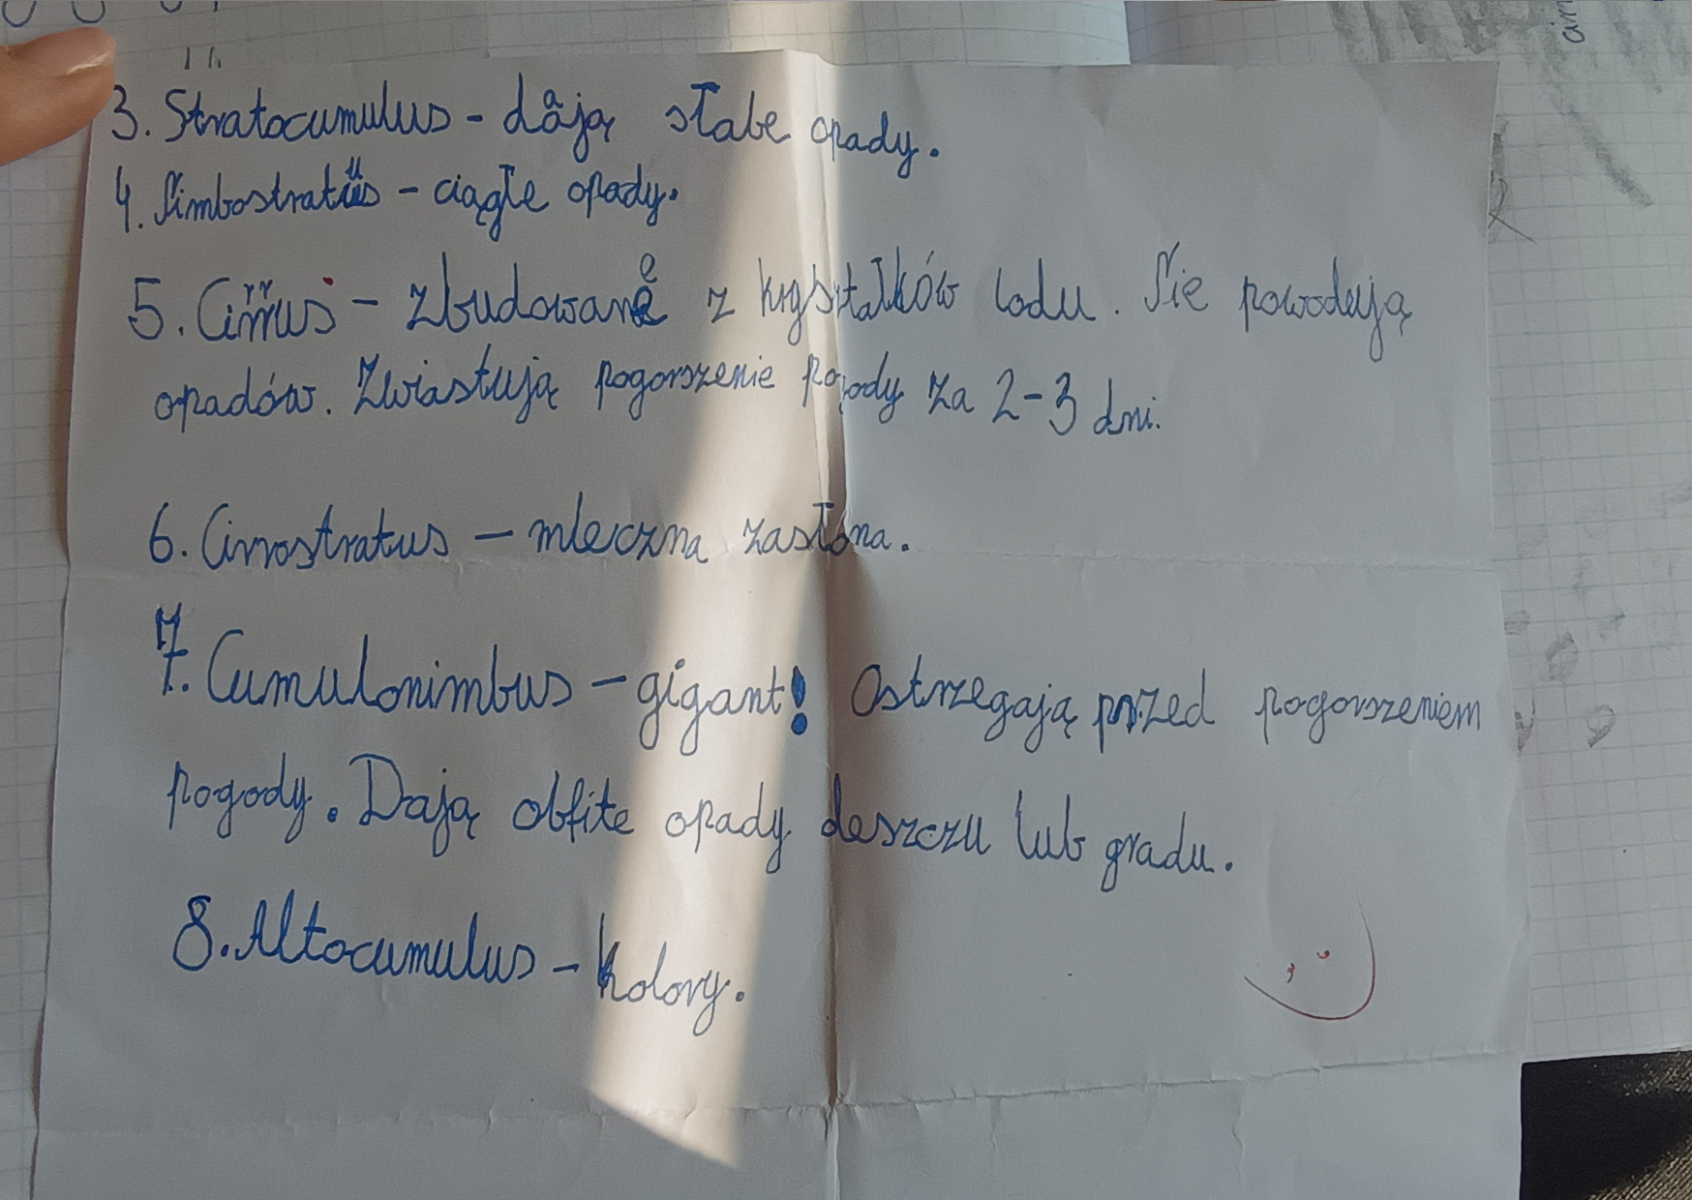 3. Stratocumulus - dają słabe opady.
4. Nimbostratus - ciągłe opady.
5. Cirrus - zbudowane z kryształków lodu. Nie powodują
opadów. Zwiastują pogorszenie pogody za 2-3 dni.
6. Cirrostratus - mleczna zasłona.
7. Cumulonimbus - gigant! Ostrzegają przed pogorszeniem
pogody. Dają obfite opady deszczu lub gradu.
8. Altocumulus - Kolory.